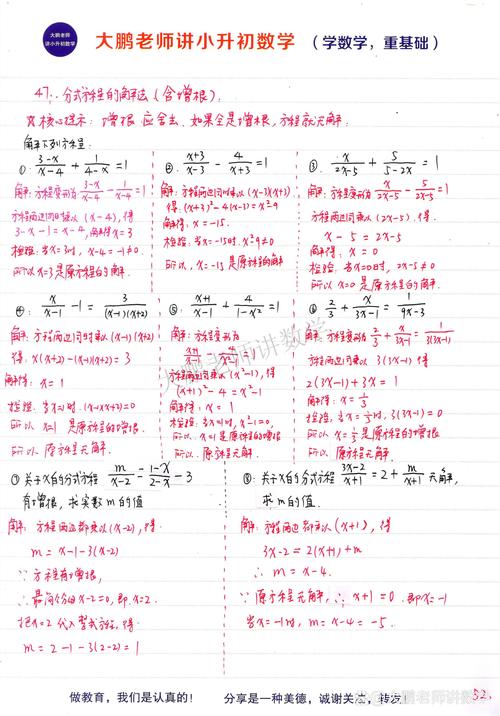 大鹏老师
讲小升初数学
大鹏老师讲小升初数学 （学数学，重基础）
47. 分式方程的解法（含增根）.
※核心提示：增根应舍去，如果全是增根，方程就无解.
解下列方程：
①. (3-x)/(x-4) + 1/(4-x) = 1
解：方程变形为 (3-x)/(x-4) - 1/(x-4) = 1
方程两边同时乘以 (x-4), 得
3-x-1 = x-4, 解得 x=3
检验：当x=3时, x-4=-1≠0.
所以 x=3是原方程的解.
②. (x+3)/(x-3) - 4/(x+3) = 1
解：方程两边同时乘以 (x-3)(x+3)
得 (x+3)²-4(x-3)=x²-9
解得：x=-15.
检验：当x=-15时, x²-9≠0
所以, x=-15是原方程的解
③. x/(2x-5) + 5/(5-2x) = 1
解：方程变形为 x/(2x-5) - 5/(2x-5) = 1
方程两边同乘以 (2x-5). 得.
x-5=2x-5
解得：x=0
检验. 当x=0时, 2x-5≠0
所以 x=0是原方程的解.
④. x/(x-1) - 1 = 3/((x-1)(x+2))
解：方程两边同时乘以(x-1)(x+2)
得. x(x+2)-(x-1)(x+2)=3
解得：x=1
检验. 当x=1时. (x-1)(x+2)=0
所以 x=1是原方程的增根.
所以. 原方程无解.
⑤. (x+1)/(x-1) + 4/(1-x²) = 1
解：方程变形为
(x+1)/(x-1) - 4/(x²-1) = 1
方程两边同乘以(x²-1), 得
(x+1)²-4=x²-1
解得：x=1
检验：当x=1时, x²-1=0,
所以. x=1是原方程的增根
所以. 原方程无解.
⑥ 2/3 + x/(3x-1) = 1/(9x-3)
解：方程变形为 2/3 + x/(3x-1) = 1/(3(3x-1))
方程两边同乘以 3(3x-1) 得
2(3x-1)+3x=1
解得：x=1/3
检验：当x=1/3时, 3(3x-1)=0
所以. x=1/3是原方程的增根
所以 原方程无解.
⑦ 关于x的分式方程 m/(x-2) = (1-x)/(2-x) - 3
有增根，求实数m的值
解：方程两边都乘以(x-2), 得.
m=x-1-3(x-2)
∵方程有增根,
∴最简公分母x-2=0, 即x=2.
把x=2代入整式方程, 得.
m=2-1-3(2-2)=1
⑧ 关于x的分式方程 (3x-2)/(x+1) = 2 + m/(x+1) 无解,
求m的值.
解：方程两边都乘以(x+1), 得
3x-2=2(x+1)+m
∴ m=x-4.
∵ 原方程无解, ∴ x+1=0 即x=-1
当x=-1时, m=x-4=-5.
大鹏老师讲数学
做教育，我们是认真的！ 分享是一种美德，诚谢关注，转发！
52.